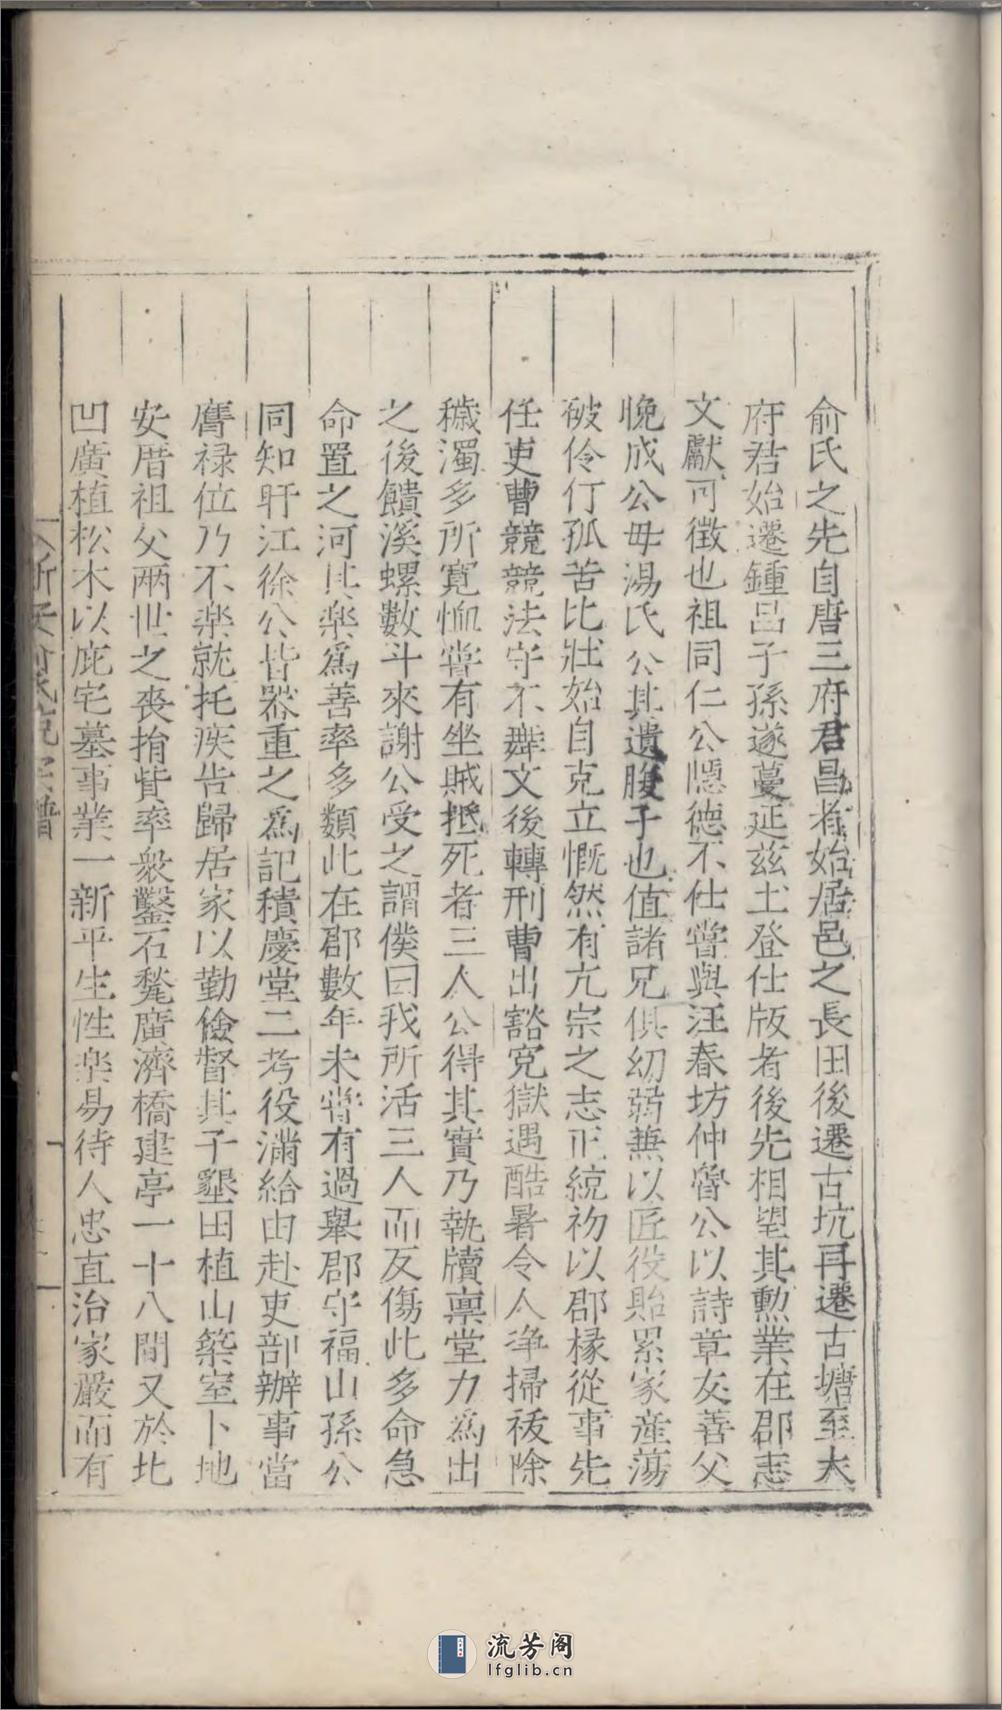 俞氏之先自唐三府君昌者始居邑之長田後遷古坑再遷古塘至大
府君始遷鍾呂子孫遂蔓延茲土登仕版者後先相望其勳業在郡志
文獻可徵也祖同仁公隱德不仕嘗與汪春坊仲魯公以詩章友善父
晚成公毋湯氏公其遺腹子也值諸兄俱幼弱兼以匠役貽累家産蕩
破伶仃孤苦比壯始自克立慨然有亢宗之志正統初以郡椽從事先
任吏曹競競法守不舞文後轉刑曹出豁寃獄遇酷暑令人淨掃祓除
穢濁多所寬恤嘗有坐賊抵死者三人公得其實乃執牘稟堂力爲出
之後饋溪螺數斗來謝公受之謂僕曰我所活三人而反傷此多命急
命置之河其樂爲善率多類此在郡數年未嘗有過舉郡守福山孫公
同知盱江徐公皆器重之爲記積慶堂二考役滿給由赴吏部辦事當
膺禄位乃不樂就托疾告歸居家以勤儉督其子墾田植山築室卜地
安厝祖父兩世之喪捐貲率衆鑿石甃廣濟橋建亭一十八間又於北
凹廣植松木以庇宅墓事業一新平生性樂易待人忠直治家嚴而有